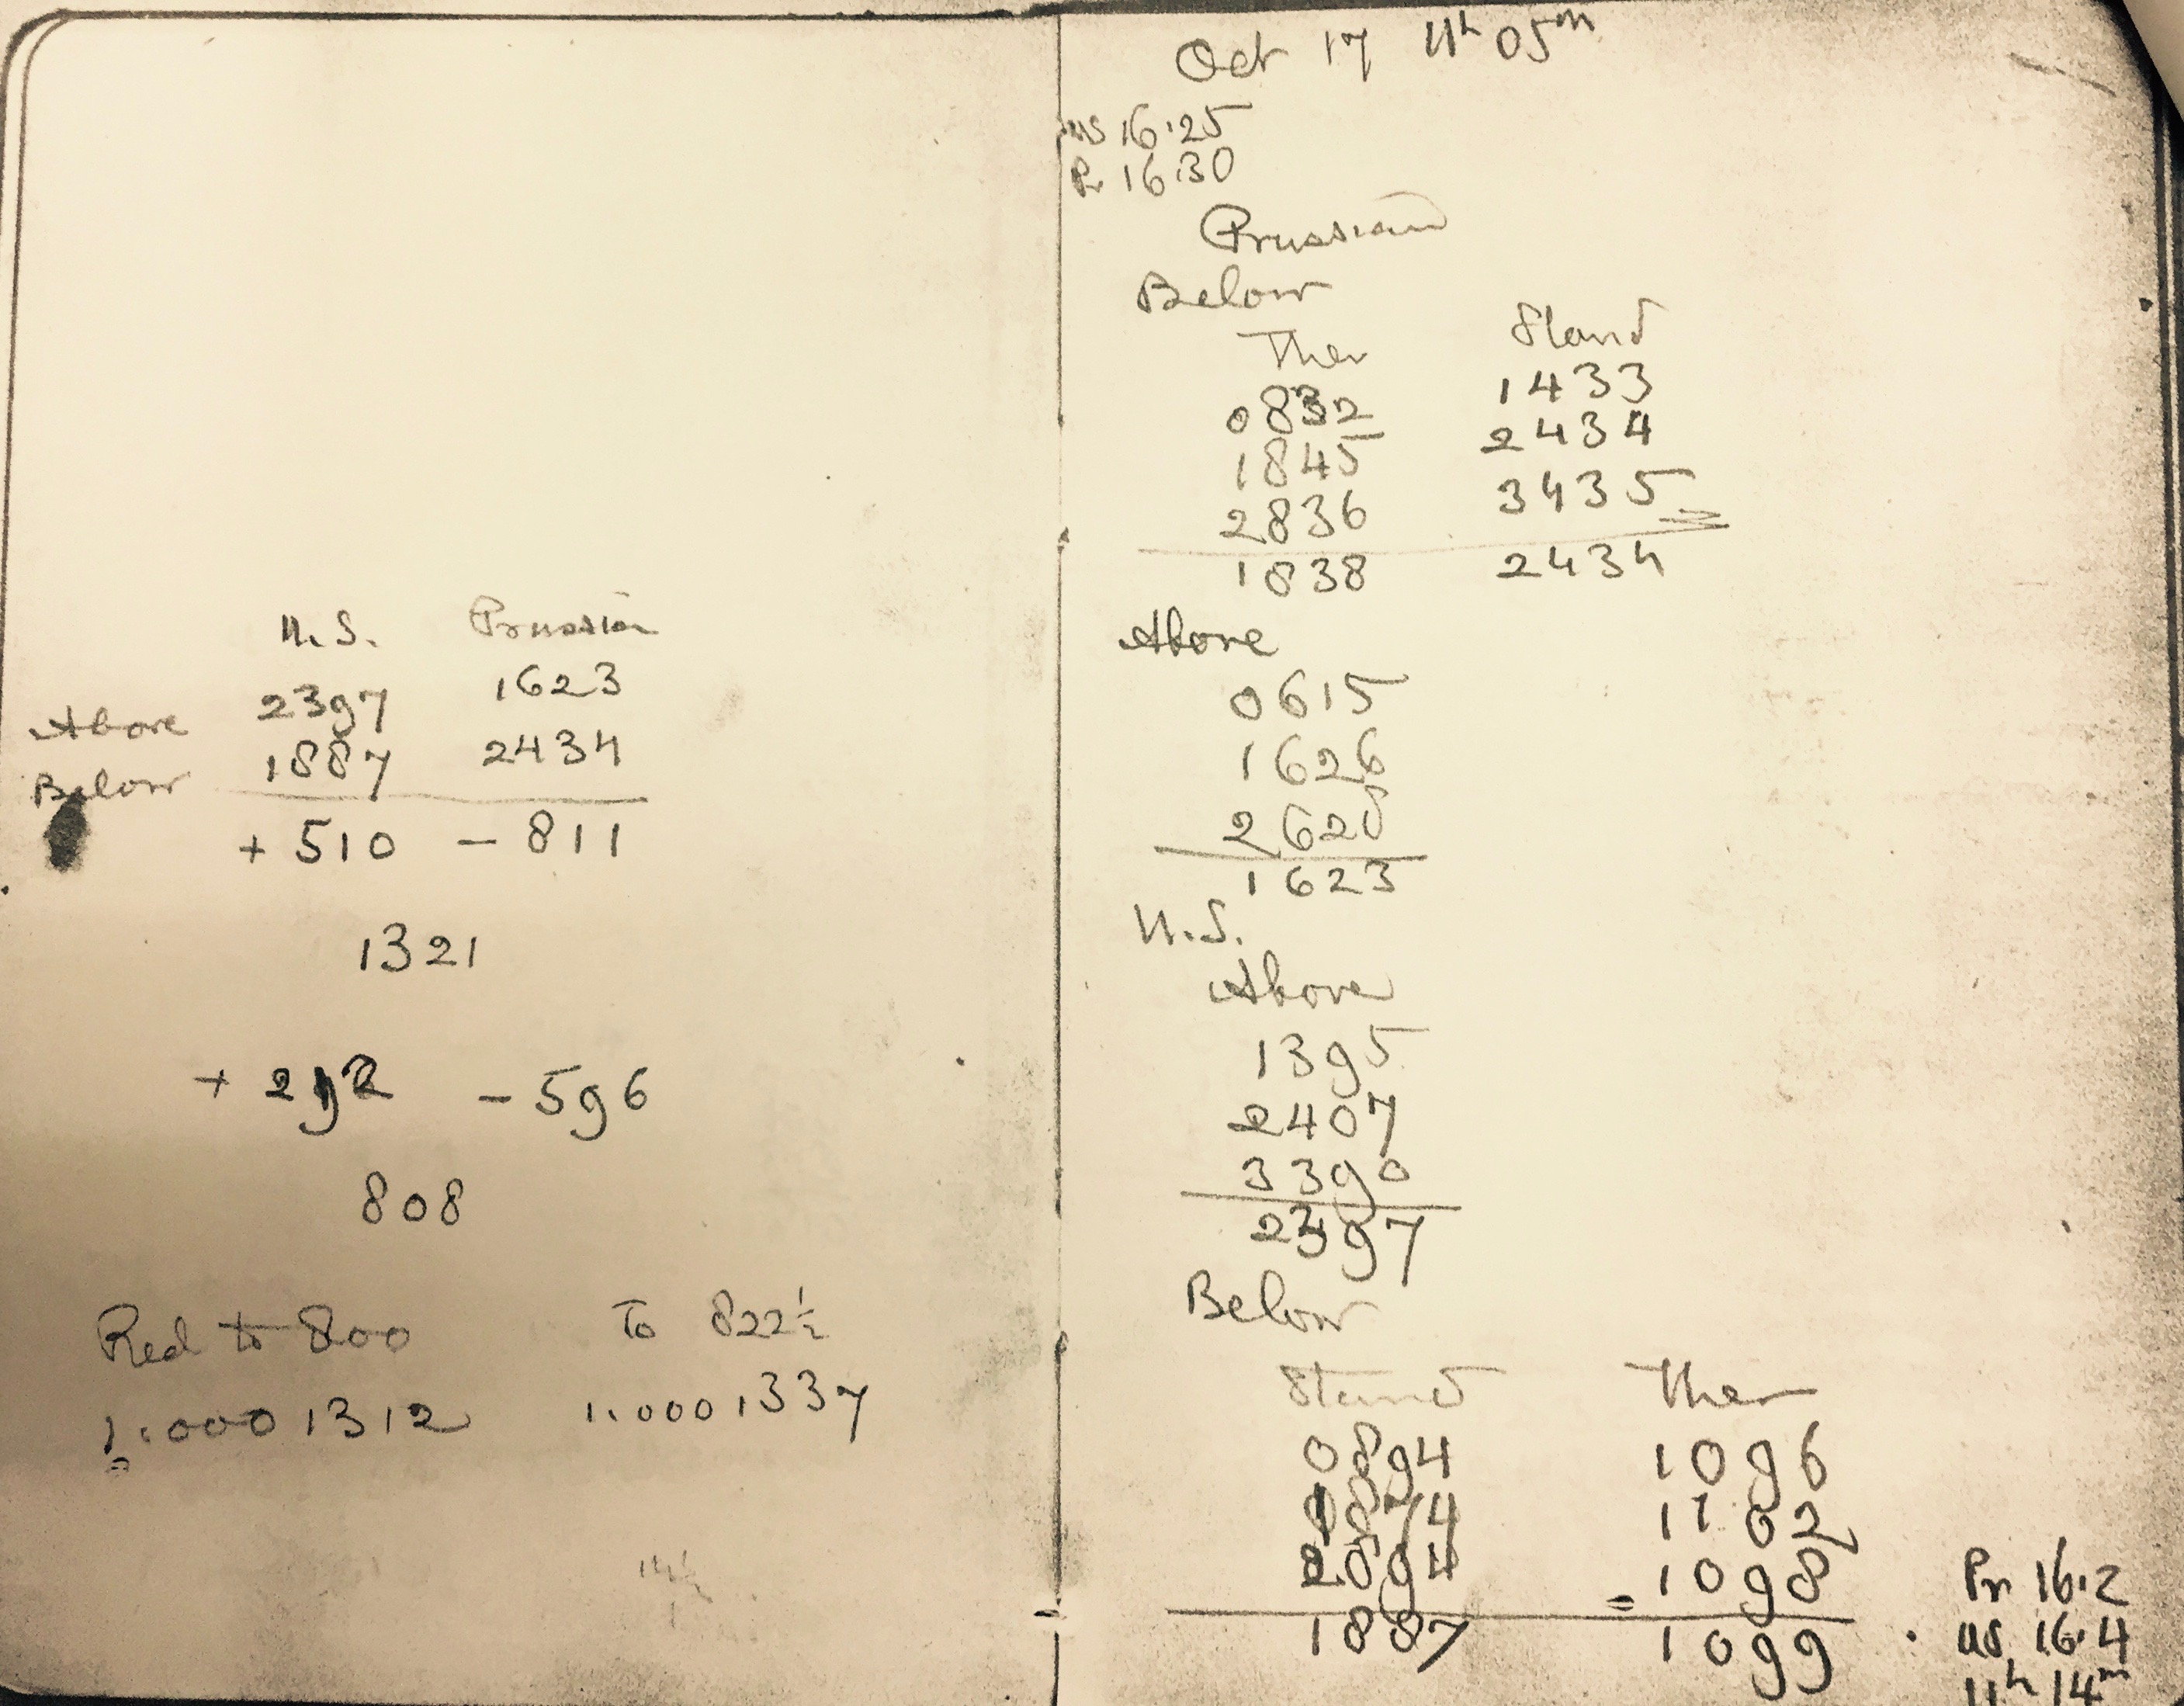 U.S. Prussian
Above 2397 1623
Below 1887 2434
+ 510 - 811
1321
+ 292 - 596
808
Red to 800 To 822½
1.0001312 1.0001337
14½
Oct 17 11h 05m
US 16.25
Pr 16.30
Prussian
Below
Ther Stand
0832 1433
1845 2434
2836 3435
1838 2434
Above
0615
1626
2628
1623
U.S.
Above
1395
2407
3390
2397
Below
Stand Ther
0894 1096
1874 1102
2894 1098
1887 1099
Pr 16.2
US 16.4
11h 14m